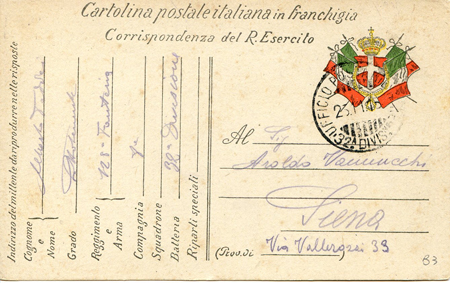 Cartolina postale italiana in franchigia
Corrispondenza del R. Esercito
UFFICIO
32ª DIVIS
Indirizzo del mittente da riprodurre nelle risposte
Cognome e Nome
Grado
Reggimento e Arma 128° Fanteria
Compagnia 7ª
Squadrone 32ª Divisione
Batteria
Riparti speciali
Al Sig
Aroldo Vannucchi
Siena
(Prov. di
Via Vallerozzi 33
83